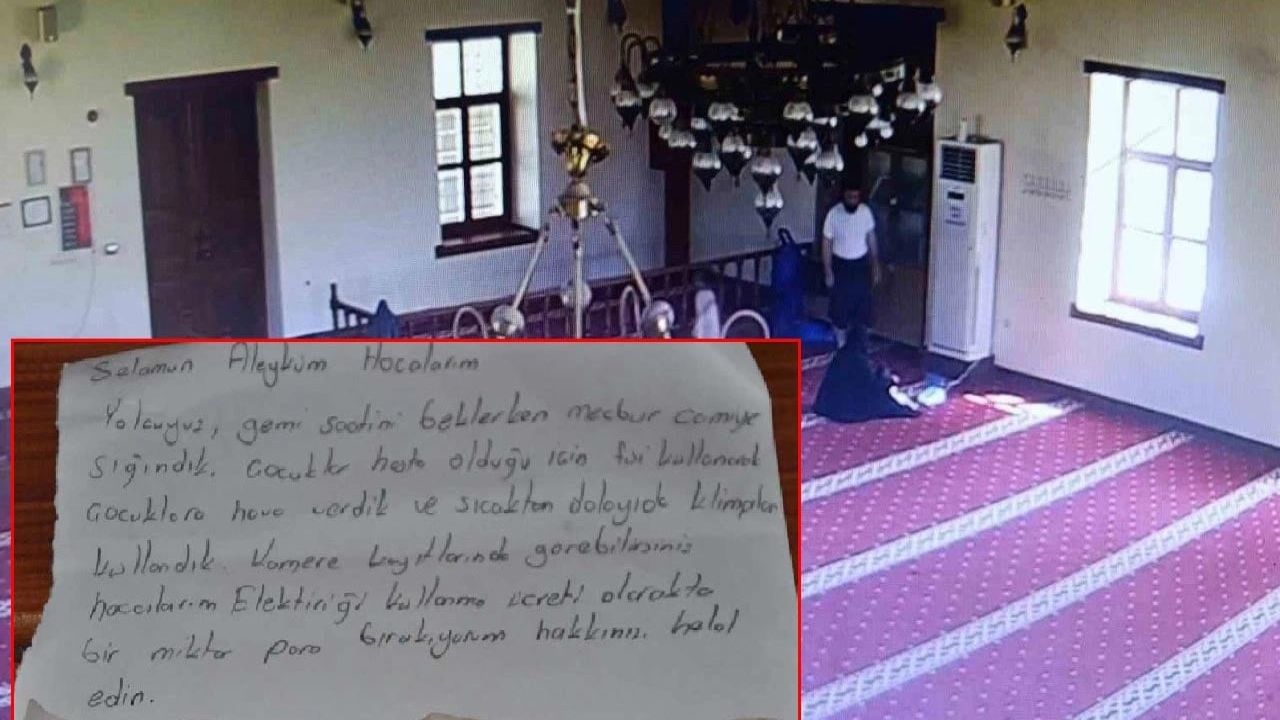 Selamun Aleyküm Hocalarım
Yolcuyuz, gemi saatini beklerken mecbur camiye
sığındık. Çocuklar hasta olduğu için fişi kullanarak
çocuklara hava verdik ve sıcaktan dolayıda klimaları
kullandık. Kamera kayıtlarında görebilirsiniz
hocalarım Elektiriği kullanma ücreti olarakta
bir miktar para bırakıyorum hakkınızı helal
edin.